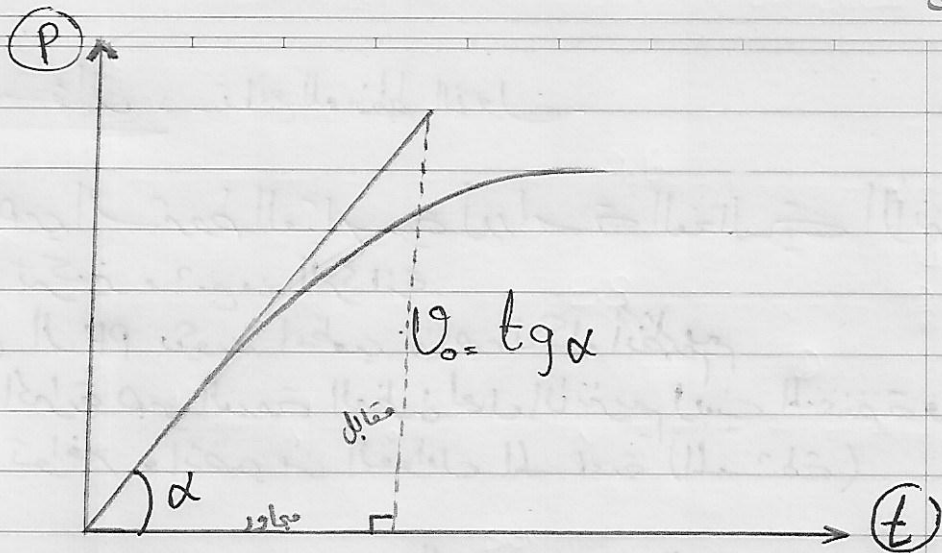 P
V₀ = tg α
مقابل
α
مجاور
t